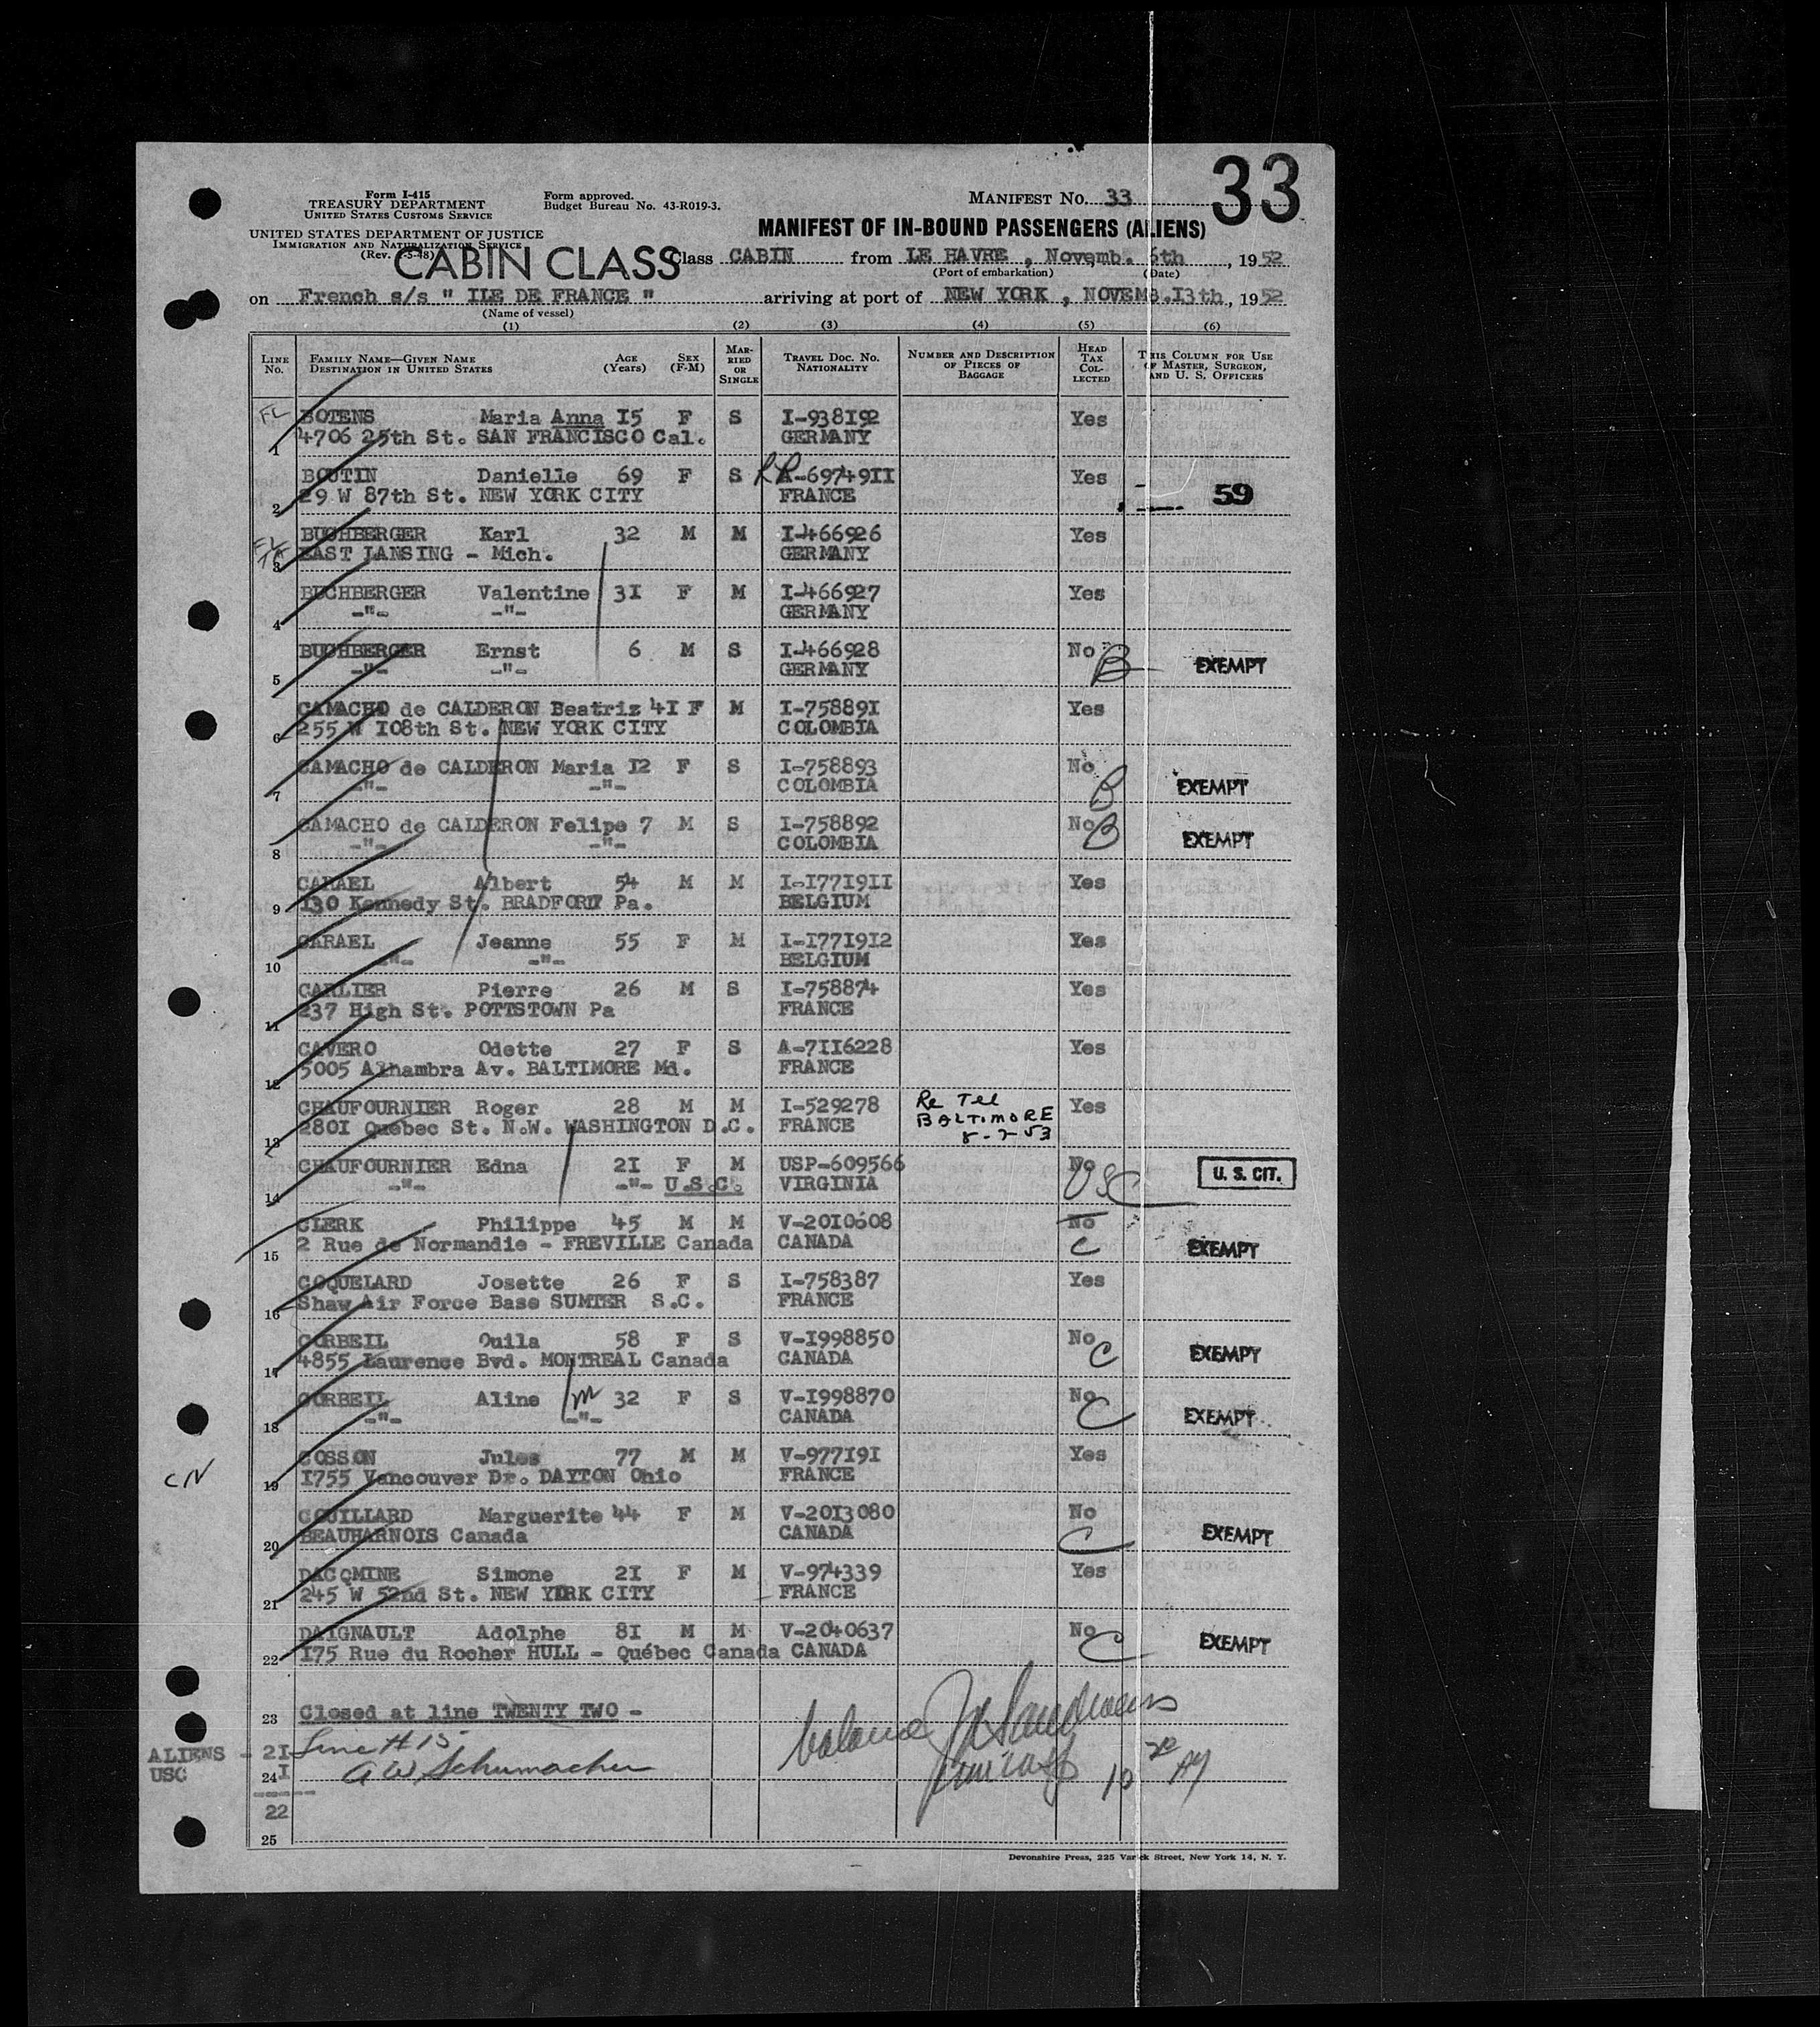 33
Form I-415
TREASURY DEPARTMENT
UNITED STATES CUSTOMS SERVICE
Form approved.
Budget Bureau No. 43-R019-3.
MANIFEST NO. 33
UNITED STATES DEPARTMENT OF JUSTICE
IMMIGRATION AND NATURALIZATION SERVICE
(Rev. -5-48)
MANIFEST OF IN-BOUND PASSENGERS (ALIENS)
CABIN CLASS
Class CABIN from LE HAVRE , Novemb. 6th , 1952
(Port of embarkation) (Date)
on French s/s " ILE DE FRANCE " arriving at port of NEW YORK , NOVEMB.I3th, 1952
(Name of vessel)
(1) (2) (3) (4) (5) (6)
LINE No. FAMILY NAME—GIVEN NAME DESTINATION IN UNITED STATES AGE (Years) SEX (F-M) MARRIED OR SINGLE TRAVEL DOC. NO. NATIONALITY NUMBER AND DESCRIPTION OF PIECES OF BAGGAGE HEAD TAX COLLECTED THIS COLUMN FOR USE OF MASTER, SURGEON, AND U. S. OFFICERS
FL BOTENS Maria Anna I5 F S I-938I92 Yes
1 4706 25th St. SAN FRANCISCO Cal. GERMANY
BOUTIN Danielle 69 F S RR A-69749II Yes
2 29 W 87th St. NEW YORK CITY FRANCE 59
BUCHBERGER Karl 32 M M I-466926 Yes
3 EAST LANSING - Mich. GERMANY
BUCHBERGER Valentine 3I F M I-466927 Yes
4 -"- -"- GERMANY
BUCHBERGER Ernst 6 M S I-466928 No B EXEMPT
5 -"- -"- GERMANY
CAMACHO de CALDERON Beatriz 4I F M I-75889I Yes
6 255 W I08th St. NEW YORK CITY COLOMBIA
CAMACHO de CALDERON Maria I2 F S I-758893 No B EXEMPT
7 -"- -"- COLOMBIA
CAMACHO de CALDERON Felipe 7 M S I-758892 No B EXEMPT
8 -"- -"- COLOMBIA
CARAEL Albert 54 M M I-I77I9II Yes
9 I30 Kennedy St. BRADFORD Pa. BELGIUM
CARAEL Jeanne 55 F M I-I77I9I2 Yes
10 -"- -"- BELGIUM
CARLIER Pierre 26 M S I-758874 Yes
11 237 High St. POTTSTOWN Pa FRANCE
CAVERO Odette 27 F S A-7II6228 Yes
12 5005 Alhambra Av. BALTIMORE Md. FRANCE
CHAUFOURNIER Roger 28 M M I-529278 Re Tel BALTIMORE 8-7-53 Yes
13 280I Québec St. N.W. WASHINGTON D.C. FRANCE
CHAUFOURNIER Edna 2I F M USP-609566 No USC U. S. CIT.
14 -"- -"- U.S.C. VIRGINIA
CLERK Philippe 45 M M V-20I0608 No C EXEMPT
15 2 Rue de Normandie - FREVILLE Canada CANADA
COQUELARD Josette 26 F S I-758387 Yes
16 Shaw Air Force Base SUMTER S.C. FRANCE
CORBEIL Ouila 58 F S V-I998850 No C EXEMPT
17 4855 Laurence Bvd. MONTREAL Canada CANADA
CORBEIL Aline m 32 F S V-I998870 No C EXEMPT
18 -"- -"- CANADA
COSSON Jules 77 M M V-977I9I Yes
CN 19 I755 Vancouver Dr. DAYTON Ohio FRANCE
COUILLARD Marguerite 44 F M V-20I3080 No C EXEMPT
20 BEAUHARNOIS Canada CANADA
DACOMINE Simone 2I F M V-974339 Yes
21 245 W 52nd St. NEW YORK CITY FRANCE
DAIGNAULT Adolphe 8I M M V-2040637 No C EXEMPT
22 I75 Rue du Rocher HULL - Québec Canada CANADA
23 Closed at line TWENTY TWO -
Line # 15
ALIENS - 2I
A W Schumacher
balance
USC I
24
10 30 AM
22
25
Devonshire Press, 225 Varick Street, New York 14, N. Y.